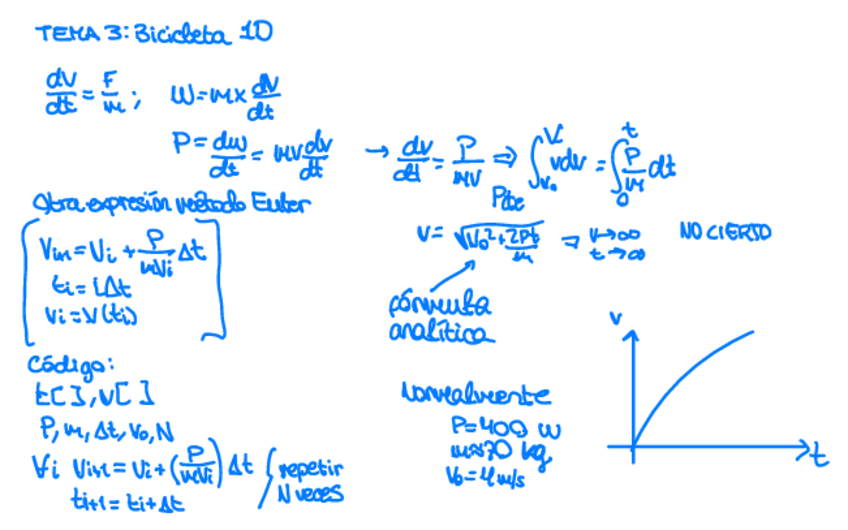 TEMA 3: Bicicleta 1D
dv/dt = F/m ; W = mx dv/dt
P = dw/dt = mv dv/dt → dv/dt = P/mv ⇒ ∫_{v₀}^{v} vdv = ∫_0^t P/m dt
Pcte
Otra expresión método Euler
V_{i+1} = V_i + P/mV_i Δt
t_i = iΔt
v_i = v(t_i)
v = √(v₀² + 2Pt/m) ⇒ v→∞ NO CIERTO
t→∞
fórmula
analítica
Código:
t[ ], v[ ]
P, m, Δt, v₀, N
∀i V_{i+1} = v_i + (P/mv_i) Δt { repetir
t_{i+1} = t_i + Δt N veces
Normalmente
P = 400 W
m ≈ 70 kg
v₀ = 4 m/s
v
t